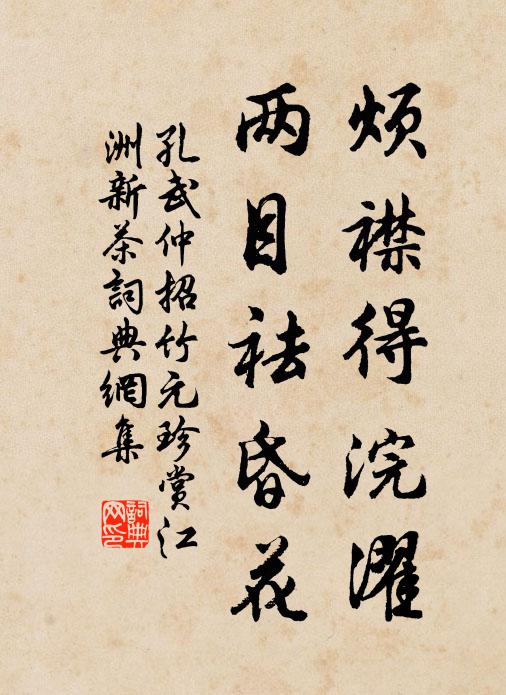 烦襟得浣濯
两目祛昏花
孔武仲招竹元珍赏江
洲新茶詞典網集
詞典
网印